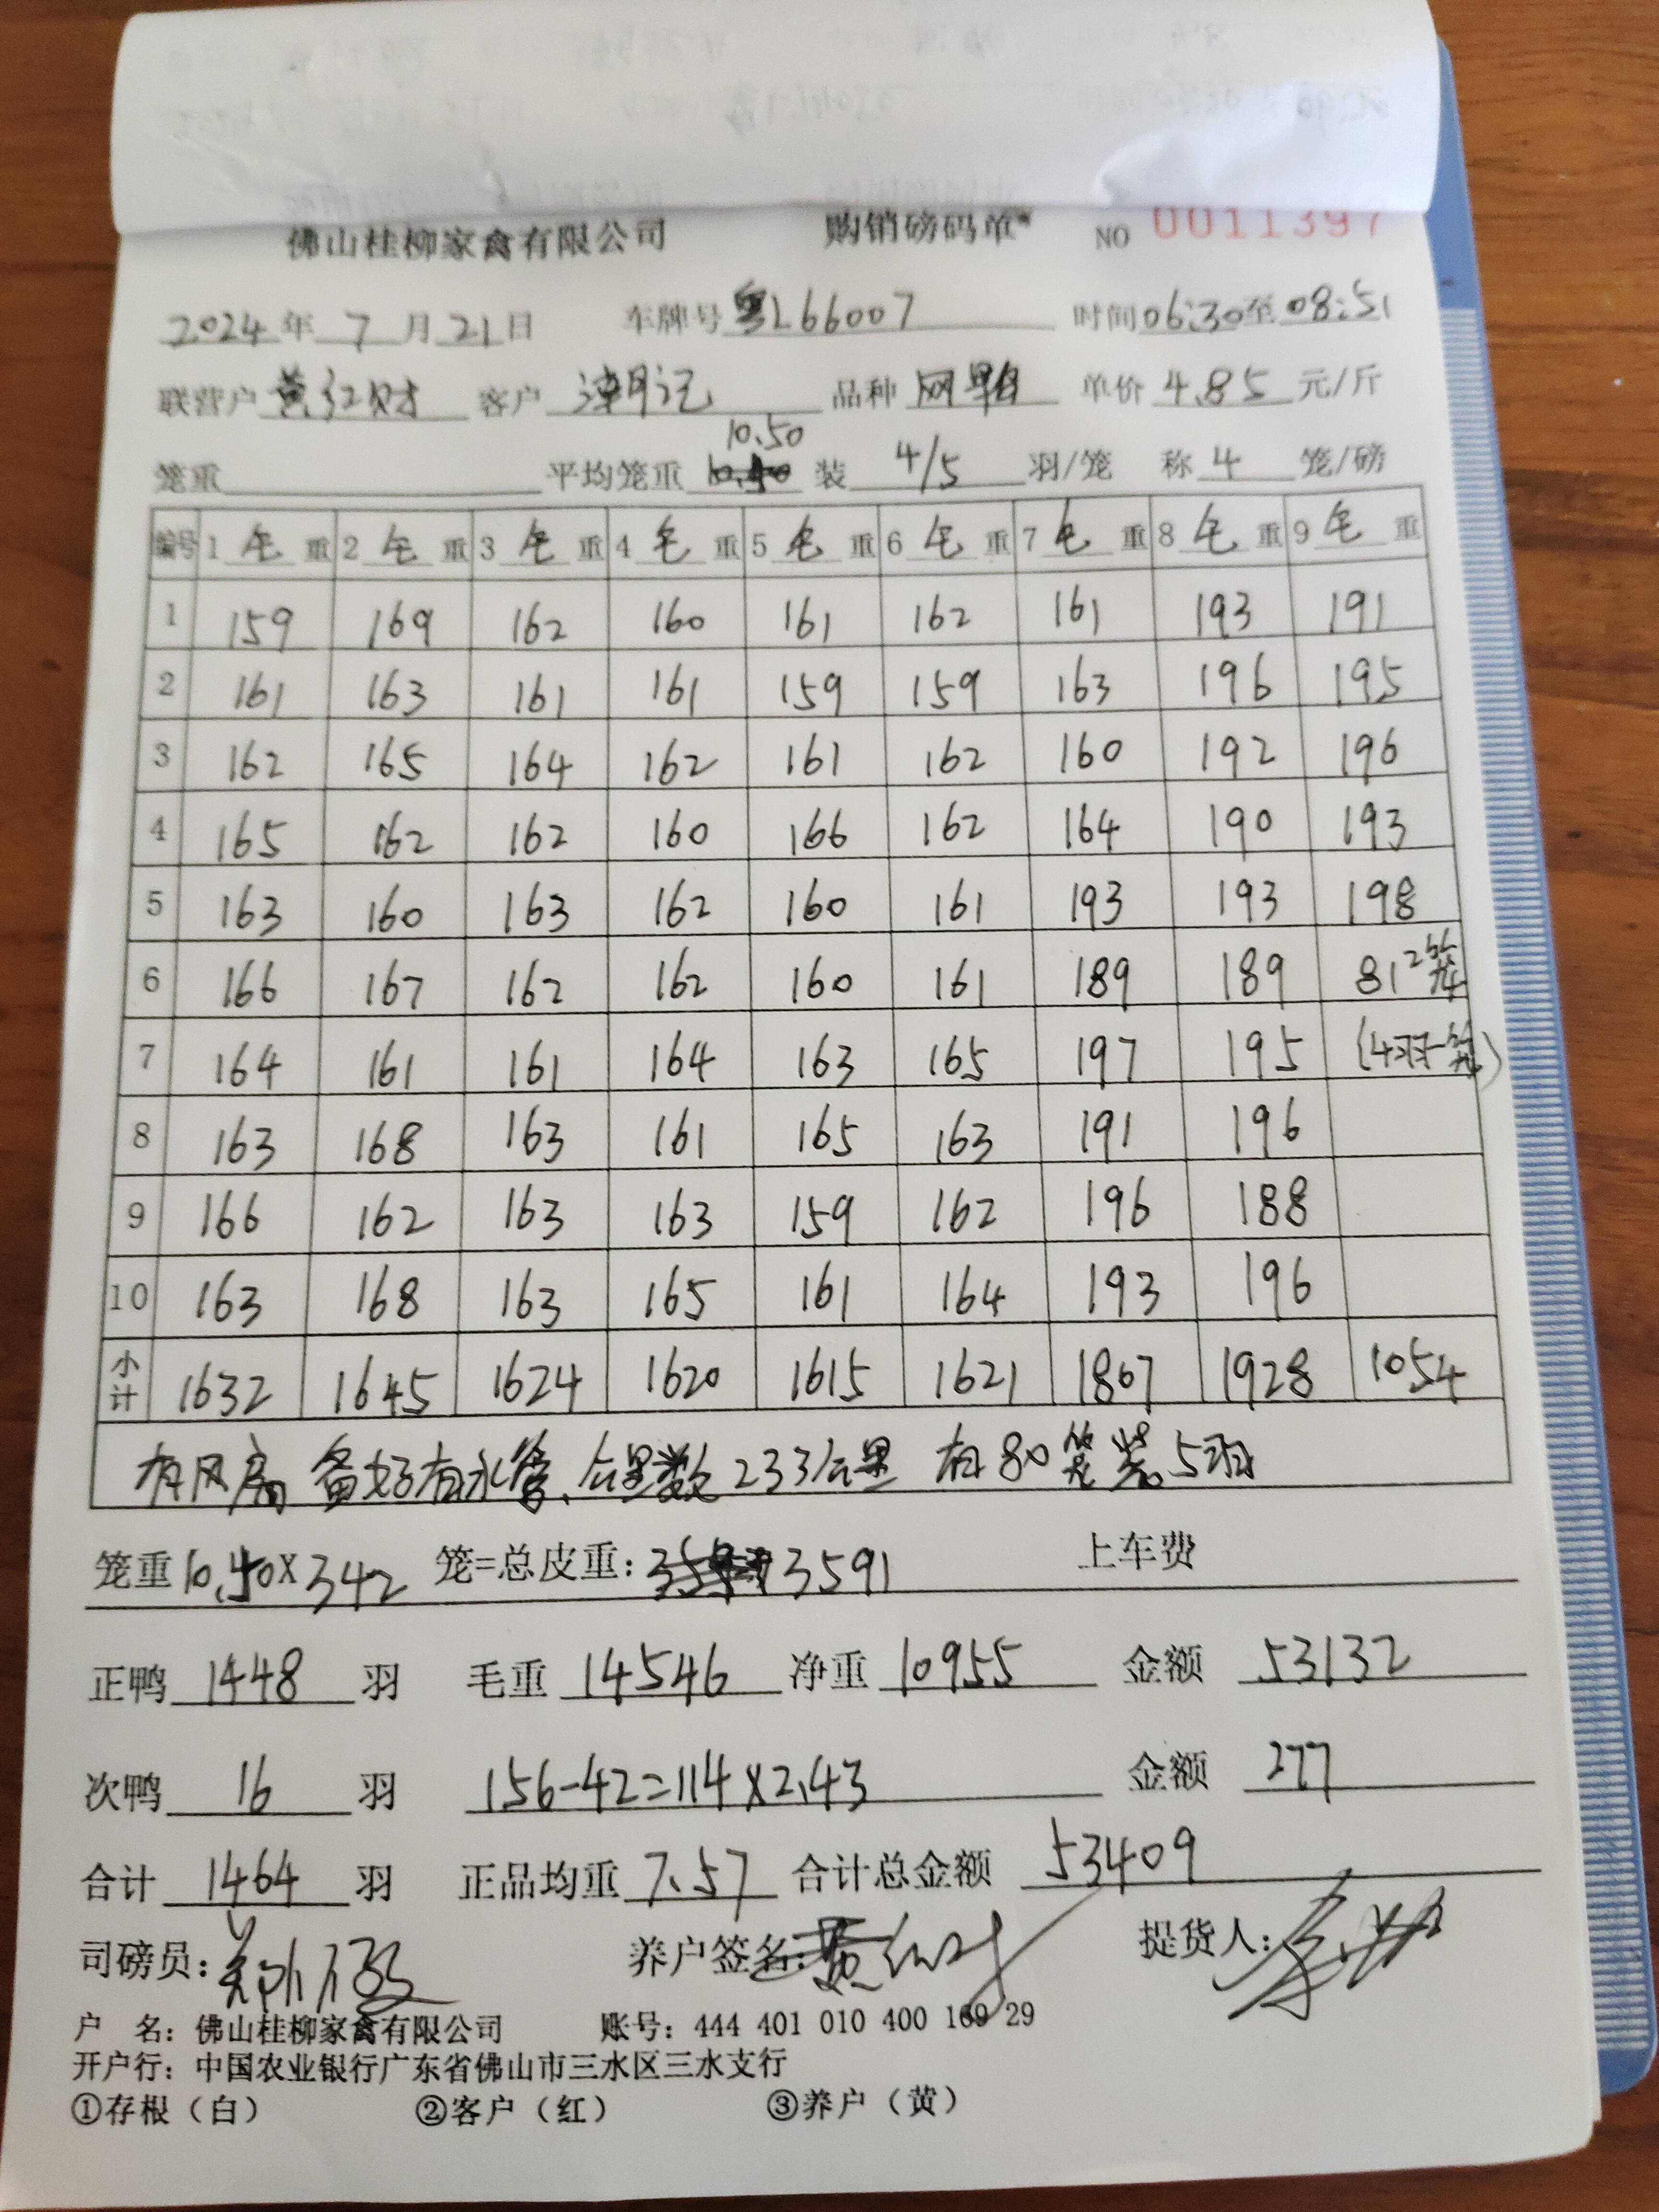 佛山桂柳家禽有限公司 购销磅码单 NO 0011397
2024年7月21日 车牌号 粤L66007 时间06:30至08:51
联营户 黄红财 客户 潮记 品种 网 单价 4.85 元/斤
10.50
笼重 平均笼重 装 4/5 羽/笼 称 4 笼/磅
编号 1毛重 2毛重 3毛重 4毛重 5毛重 6毛重 7毛重 8毛重 9毛重
1 159 169 162 160 161 162 161 193 191
2 161 163 161 161 159 159 163 196 195
3 162 165 164 162 161 162 160 192 196
4 165 162 162 160 166 162 164 190 193
5 163 160 163 162 160 161 193 193 198
6 166 167 162 162 160 161 189 189 81 2笼
7 164 161 161 164 163 165 197 195 (4羽一笼)
8 163 168 163 161 165 163 191 196
9 166 162 163 163 159 162 196 188
10 163 168 163 165 161 164 193 196
小计 1632 1645 1624 1620 1615 1621 1807 1928 1054
有风扇 备好有水管、公里数233公里 有80笼装5羽
笼重10.50X342 笼=总皮重: 3591 上车费
正鸭 1448 羽 毛重 14546 净重 10955 金额 53132
次鸭 16 羽 156-42=114X2.43 金额 277
合计 1464 羽 正品均重 7.57 合计总金额 53409
司磅员: 养户签名: 黄红财 提货人:
户 名: 佛山桂柳家禽有限公司 账号: 444 401 010 400 169 29
开户行: 中国农业银行广东省佛山市三水区三水支行
①存根（白） ②客户（红） ③养户（黄）